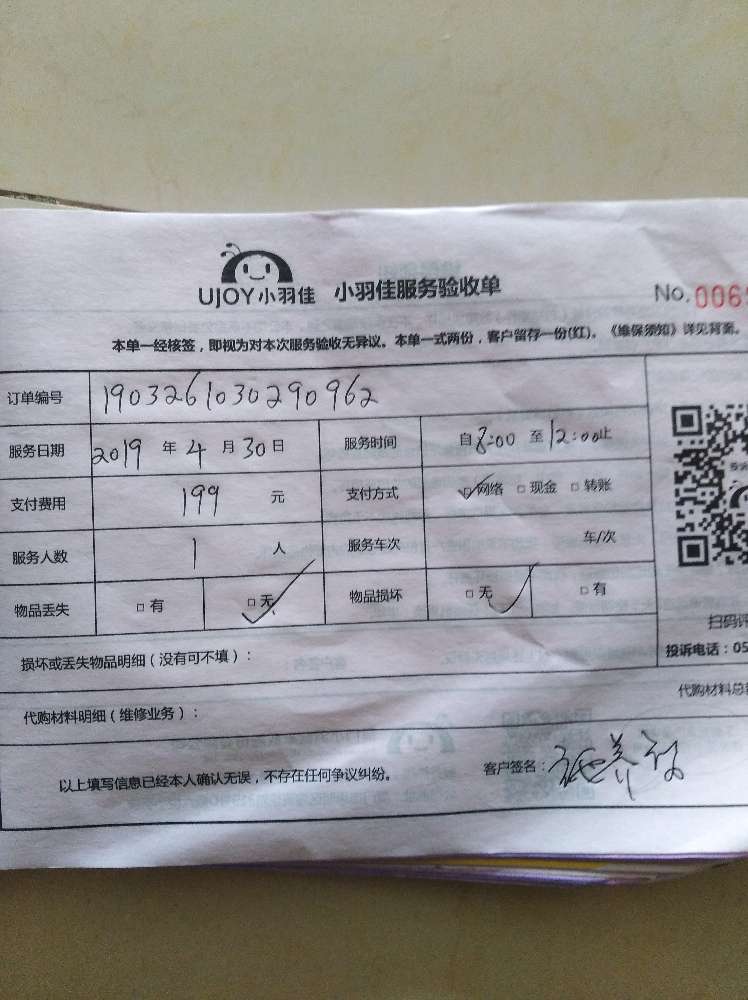 UJOY小羽佳 小羽佳服务验收单 No.0069
本单一经核签，即视为对本次服务验收无异议。本单一式两份，客户留存一份(红)。《维保须知》详见背面。
订单编号 1903261030290962
服务日期 2019 年 4 月 30 日 服务时间 自 8:00 至 12:00 止
支付费用 199 元 支付方式 ☑网络 □现金 □转账
服务人数 1 人 服务车次 车/次
物品丢失 □有 ☑无 物品损坏 ☑无 □有
扫码评
损坏或丢失物品明细（没有可不填）： 投诉电话：05
代购材料明细（维修业务）： 代购材料总
以上填写信息已经本人确认无误，不存在任何争议纠纷。 客户签名：